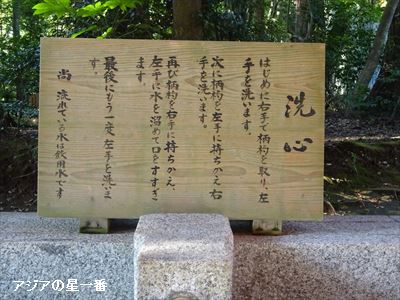 洗心
はじめに右手で柄杓を取り、左
手を洗います。
次に柄杓を左手に持ちかえ右
手を洗います。
再び柄杓を右手に持ちかえ、
左手に水を溜めて口をすすぎ
ます。
最後にもう一度左手を洗いま
す。
尚 流れている水は飲用水です
アジアの星一番